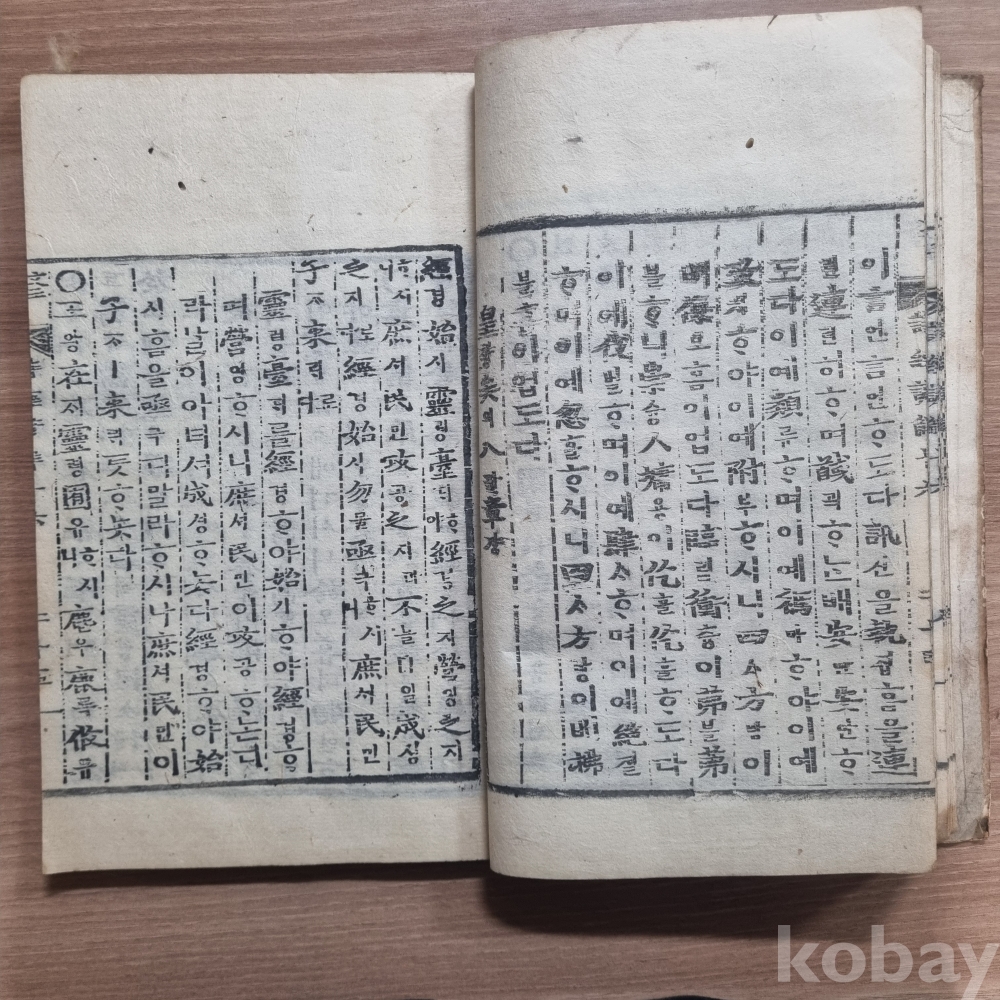 이言언言언ᄒᆞ도다訊신을執집홈을連
련連련ᄒᆞ며馘괵ᄒᆞᄂᆞᆫ배安안安안ᄒᆞ
도다이예類류ᄒᆞ며이예禡마ᄒᆞ야이예
ᄒᆞ야이예附부ᄒᆞ시니四ᄉᆞ方방이
侮모홈이업도다臨림衝츙이茀블茀
블ᄒᆞ니崇숭墉용이仡흘仡흘ᄒᆞ도다
이예伐벌ᄒᆞ며이예肆ᄉᆞᄒᆞ며이예絕졀
ᄒᆞ며이예忽홀ᄒᆞ시니四ᄉᆞ方방이拂
블홈이업도다
皇황矣의八팔章쟝
經경始시靈령臺ᄃᆡᄒᆞ야經경之지營영之지
ᄒᆞ시庶셔民민攻공之지라不블日일成셩
之지로다經경始시勿믈亟극ᄒᆞ시나庶셔民민
子ᄌᆞ來ᄅᆡ로다
靈령臺ᄃᆡ를經경ᄒᆞ야始ᄒᆞ야經경ᄒᆞ
며營영ᄒᆞ시니庶셔民민이攻공ᄒᆞᄂᆞ니
라날이아녀셔成ᄒᆞ놋다經경ᄒᆞ야始
시홈을亟극디말라ᄒᆞ시나庶셔民민이
子ᄌᆞㅣ來ᄅᆡ듯ᄒᆞ놋다
○王왕在ᄌᆡ靈령囿유ᄒᆞ시니麀우鹿록攸유
kobay